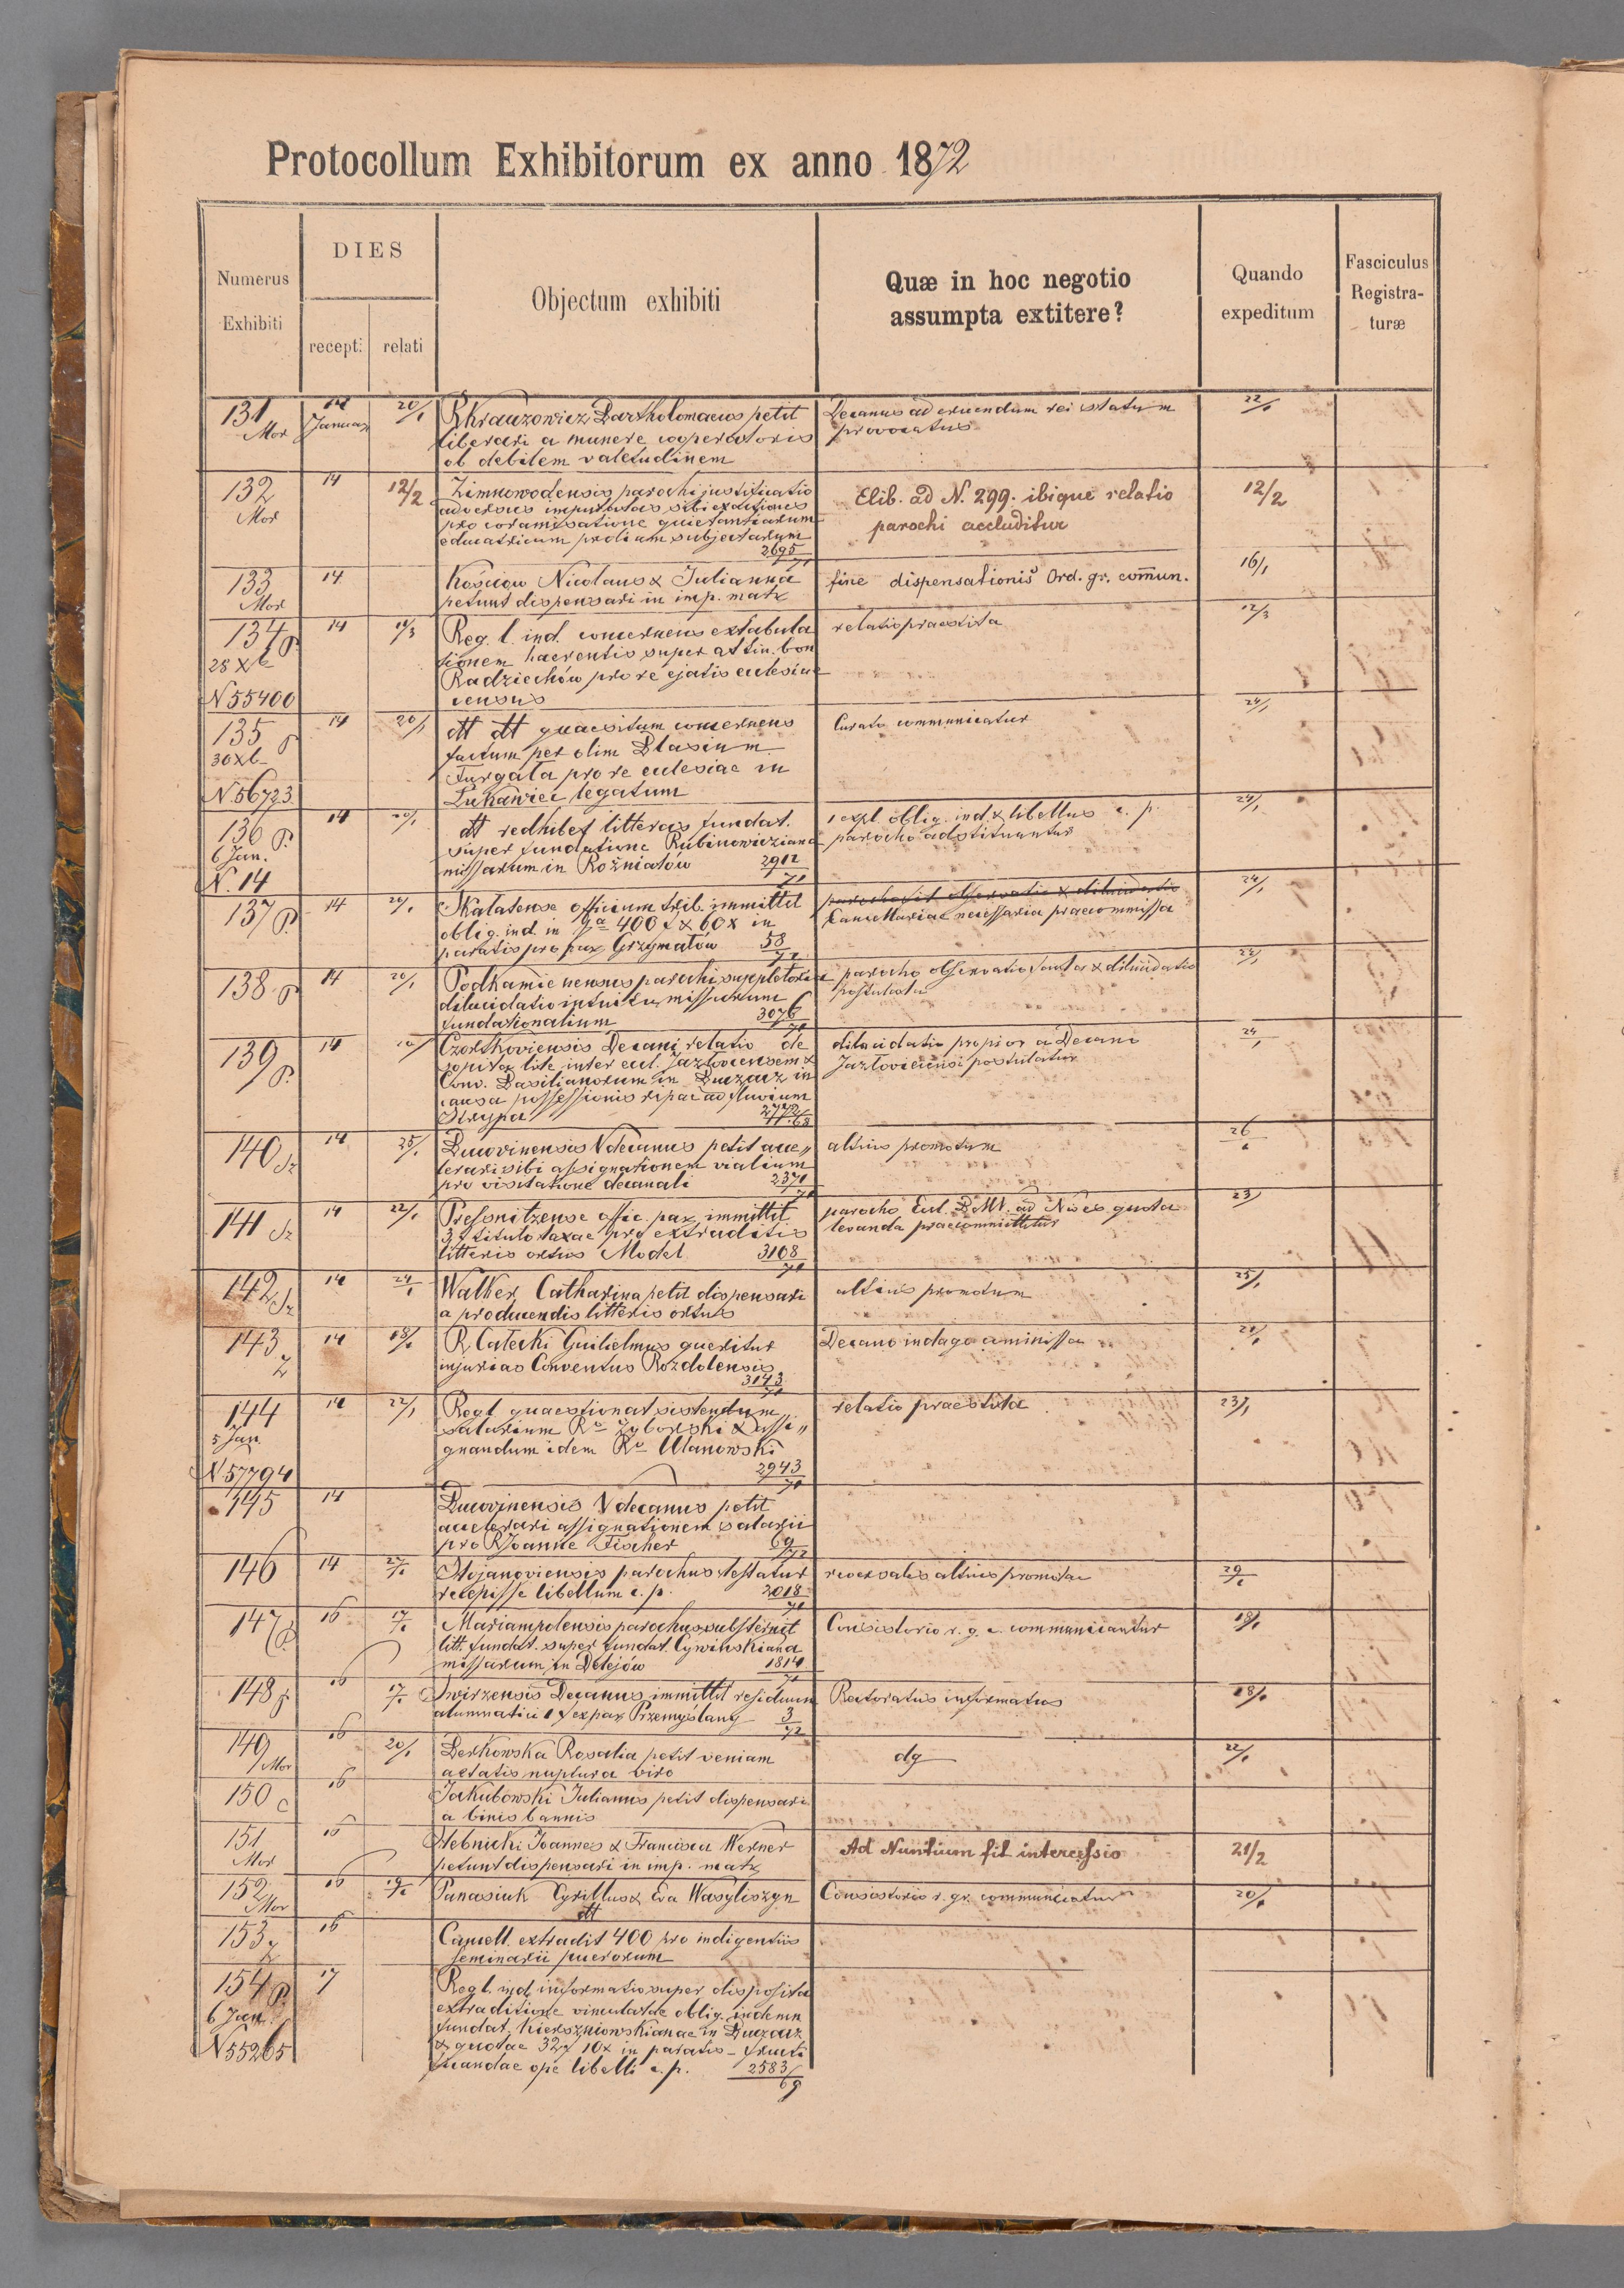 Protocollum Exhibitorum ex anno 1872
Numerus Exhibiti
DIES
recept:
relati
Objectum exhibiti
Quæ in hoc negotio
assumpta extitere?
Quando
expeditum
Fasciculus
Registra-
turæ
131 Mor
14 Januar
20/1
Bartholomaeus petit
liberari a munere cooperatoris
ob debilem valetudinem
Decanus ad eruendum rei statum
provocatus
22/1
132 Mor
14
12/2
Zimnowodensis parochi justificatio
adversus imputatas sibi exactiones
pro coramisatione quietantiarum
educatricum prolium subjectarum
2695/71
Elib. ad N. 299. ibique relatio
parochi accluditur
12/2
133 Mor
14
Kościow Nicolaus & Julianna
petunt dispensari in imp. matr
fine dispensationis Ord. gr. commun.
16/1
134 P.
25 Xb
N 55400
14
Reg. l. ind. concernens extabula
tionem haerentis super attin. bon
Radziechów pro re ejatis eclesiae
census
relatio praestita
12/3
135 P
30 Xb
N. 56723
14
20/1
dtt dtt quaesitum concernens
factum per olim Blasium
Furgała pro re eclesiae in
Łukawiec legatum
Curato communicatur
24/1
136 P.
6 Jan.
N. 14
14
20/1
dtt redhibet litteras fundat.
super fundatione Rubinowicziana
missarum in Rożniatów
2912/71
1 expl. oblig. ind. & libellus c. p.
parocho adstituuntur
24/1
137 P.
14
20/1
Skałatense officium trib. immittit
oblig. ind. in 400 f & 60 x in
paratis pro par Grzymałów
58/72
Cancellariae necessaria praecommissa
24/1
138 P
14
20/1
Podkamienensis parochi suppletoria
dilucidatio intuitu missarum
fundationalium
3076/71
parocho observatio & dilucidatio
postulatur
139 P.
14
Czortkoviensis Decani relatio de
sopita lite inter ecl. Jazłoviensem &
Conv. Basilianorum in Buczacz in
causa possessionis ripae ad fluvium
Strypa
dilucidatio propior a Decano
Jazłoviciensi postulatur
24/1
140 Sz
14
25/1
Bucovinensis Vdecanus petit acce„
lerari sibi assignationem vialium
pro visitatione decanali
2371/71
altius promotum
26/1
141 Sz
14
22/1
Pressnitzense offic. par. immittit
3 f titulo taxae pro extraditis
litteris ortus Model
3108/71
parocho Ecl. B.M.V. ad Nives quota
levanda praecommittitur
23/1
142 Sz
14
24/1
Walker Catharina petit dispensari
a producendis litteris ortus
altius promotum
25/1
143 Z
14
18/1
R. Catecki Guilielmus queritur
injurias Conventus Rozdolensis
3143/71
Decano indago commissa
20/1
144
5 Jan.
N 57794
14
22/1
Regl quaestionat sistendum
salarium Ro Zyborski & assi„
gnandum idem Ro Ulanowski
2943/71
relatio praestita
23/1
145
14
Bucovinensis Vdecanus petit
accelerari assignationem salarii
pro R Joanne Fischer
69/72
146
14
27/1
Stojanoviensis parochus testatur
recepisse libellum c. p.
2018/71
reversales altius promotae
29/1
147 P.
16
17/1
Mariampolensis parochus substernit
litt. fundat. super fundat. Cywińskiana
missarum in Delejów
1814/71
Consistorio r. g. c. communicantur
18/1
148
16
17/1
Swirzensis Decanus immittit residuum
alumnatici 1 f ex par Przemyślany
3/72
Rectoratus informatus
18/1
149 Mor
16
20/1
Berkowska Rosalia petit veniam
aetatis nuptura viro
dg
22/1
150 C
16
Jakubowski Julianus petit dispensari
a binis bannis
151 Mor
16
Hebnicki Joannes & Francisca Werner
petunt dispensari in imp. matr
Ad Nuntium fit intercessio
21/2
152 Mor
16
19/1
Panasiuk Cyrillus & Eva Wasyliszyn
dtt
Consistorio r. gr. communicatur
20/1
153 Z
16
Capitell. extradit 400 pro indigentiis
seminarii puerorum
154 P.
6 Jan.
N 55265
17
Reg l. ind informatio super disposita
extraditione vinculatae oblig. indemn
fundat. Kierszniowskianae in Buczacz
& quotae 32 f 10 x in paratis – fructi
ficandae ope libelli c. p.
2583/69